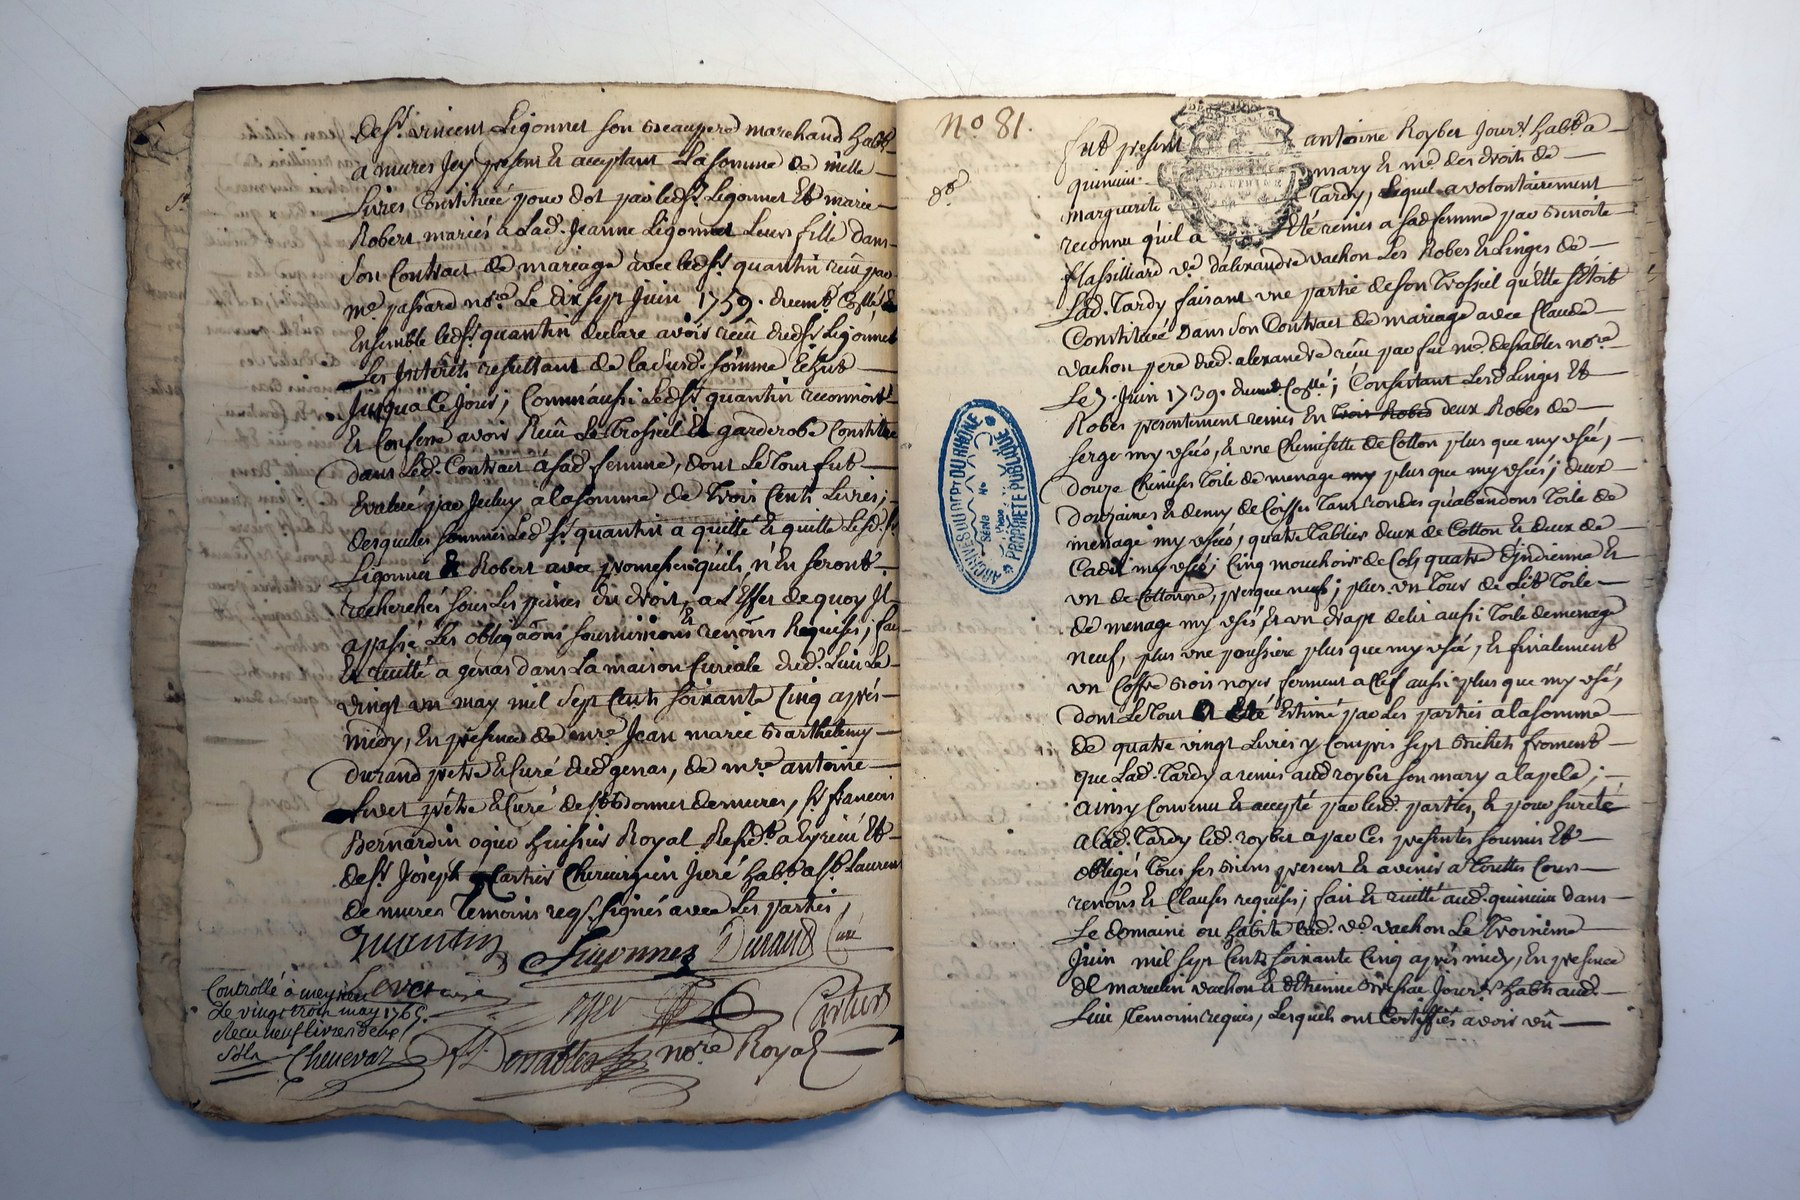 de sr. vincent Ligonnet son Beaupere marchand habt.
a mures Jcy present et acceptant La somme de mille
Livres Constituée pour dot par led. sr. Ligonnet Et marie
Robert mariés a Lad. Jeanne Ligonnet Leur fille dans
son Contract de mariage avec led. sr. quantin reçu par
me. passard nore. Le dix sept Juin 1759.
Ensemble led. sr. quantin declare avoir reçu dud. sr. Ligonnet
Les Interets resultant de lad. somme
Jusqua Ce Jour; Comm'aussi led. sr. quantin reconnoit
Et Confesse avoir Reçu Le Trossel Et garderobe Constitué
dans Led. Contract a sad. femme, dont Le Tout fut
Evalué par Jceluy a la somme de Trois Cents Livres;
desquelles sommes Led. sr. quantin a quitté Et quitte Lesd. sr.
Ligonnet Et Robert avec promesse qu'ils n'En seront
recherchés sous Les peines du droit, a L'Effet de quoy Jl
a passé Les obligaõns soumissions et renõns Requises; fait
Et a genas dans La maison Curiale dud. Lieu Le
vingt un may mil sept Cents soixante Cinq après
midy, En presence de mre. Jean marie Barthelemy
durand pretre Et Curé dud. genas, de mre. antoine
Livet prétre Et Curé de st. Bonnet de mures, sr. francois
Bernardin ogier huissier Royal Resid. a Et
de sr. Joseph Cartier Chirurgien Juré habt. a st. Laurent
de mures Temoins reqs. signés avec Les parties,
quantin Ligonnet Durand Curé
Livet curé ogier Cartier
Controllé a meyzieu
Le vingt trois may 1765.
Recu neuf livres
Chenevaz Desrables nore Royal
No 81.
fut present antoine Royber Jourr. habt. a
quincieu mary Et me. des droits de
marguerite Tardy, Lequel a volontairement
reconnu qu'il a Eté remis a sad. femme par Benoite
flassilliard ve. d'alexandre vachon Les Robes Et Linges de
Lad. Tardy faisant une partie de son Trossel qu'Elle s'étoit
Constituée dans son Contract de mariage avec Claude
vachon pere dud. alexandre reçu par feu me. desrables nore.
Le 7. Juin 1739. Consistant Lesd. Linges Et
Robes presentement remis En trois Robes deux Robes de
serge my usées, Et une Chemisette de Cotton plus que my usée,
douze Chemises Toile de menage my plus que my usées; deux
douzaines Et demy de Coiffes Tant rondes qu'abandons Toile de
menage my usées; quatre Tabliers deux de Cotton Et deux de
Cadis my usés; Cinq mouchoirs de Cols quatre d'jndienne Et
un de Cottonne, presque neufs; plus un Tour de Lit Toile
de menage my usé, Et un drapt de lit aussi Toile de menage
neuf, plus une plus que my usée, Et finalement
un Coffre Bois noyer fermant a Clef aussi plus que my usé,
dont Le Tout a Eté Estimé par Les parties a la somme
de quatre vingt Livres y Compris sept Bichets froment
que Lad. Tardy a remis aud. royber son mary a la pele;
ainsy Convenu Et accepté par lesd. parties, Et pour sureté
a Lad. Tardy led. royber a par Ces presentes soumis Et
obligés Tous ses Biens present Et avenir a Touttes Cours
renõns Et Clauses requises; fait Et aud. quincieu dans
Le domaine ou habite lad. ve. vachon Le Troisieme
Juin mil sept Cents soixante Cinq après midy, En presence
de marcelin vachon Et d'Etienne Jourrs. habts. aud.
Lieu Temoins requis, Lesquels ont Certiffiés avoir vû
ARCHIVES DU DEPT DU RHONE
Série No
PROPRIÉTÉ PUBLIQUE